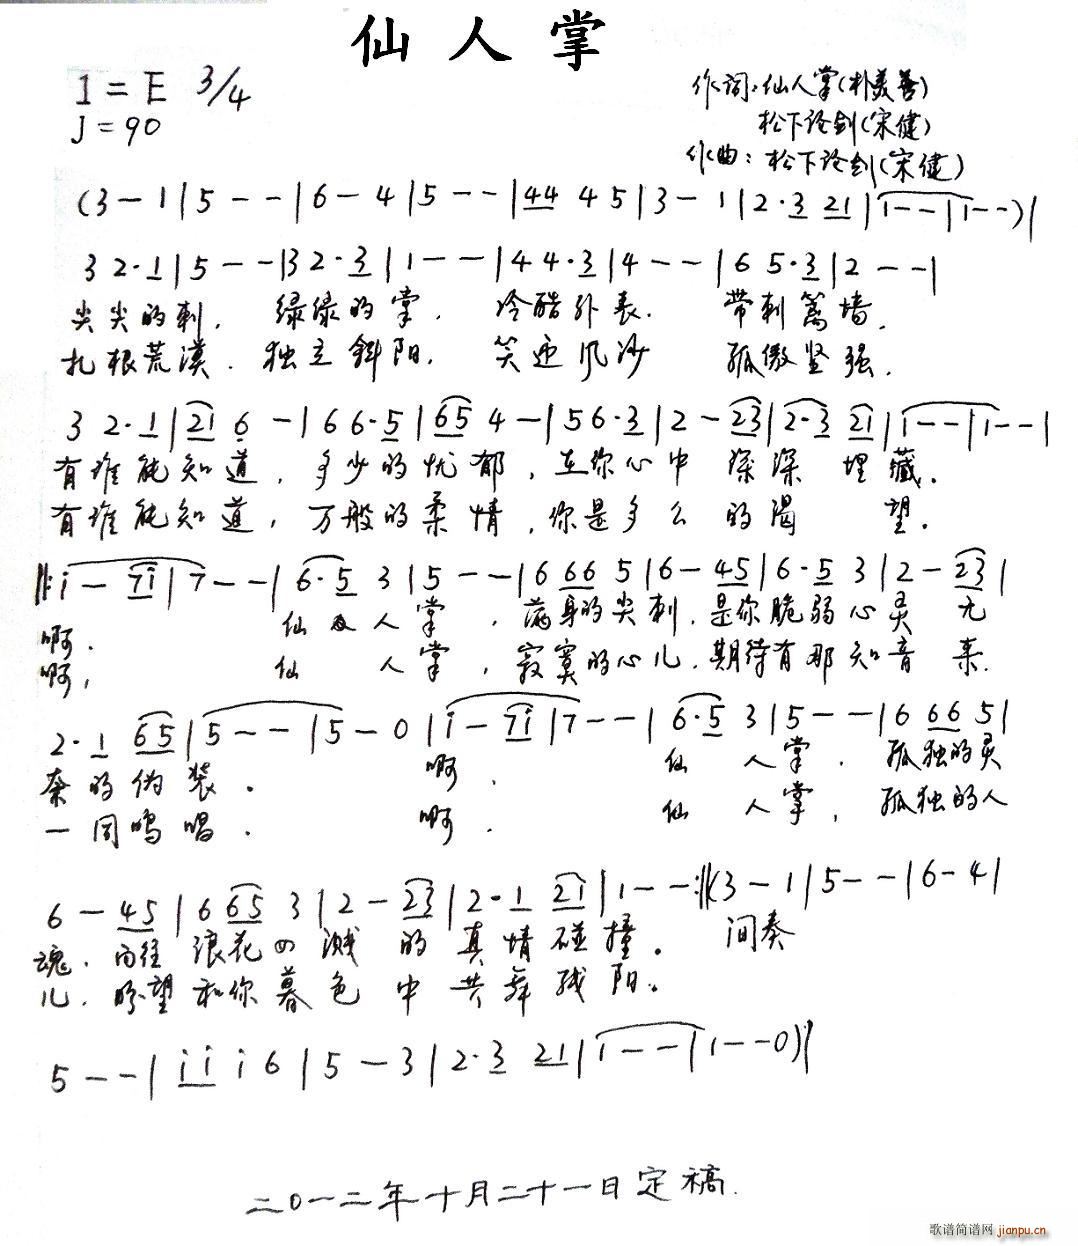 仙人掌
1=E 3/4
作词:仙人掌(朴美善)
J=90
松下论剑(宋健)
作曲:松下论剑(宋健)
(3-1|5--|6-4|5--|44 45|3-1|2·3 21|1--|1--)|
3 2·1|5--|3 2·3|1--|4 4·3|4--|6 5·3|2--|
尖尖的刺. 绿绿的掌. 冷酷外表. 带刺篱墙.
扎根荒漠. 独立斜阳. 笑迎风沙 孤傲坚强.
3 2·1|21 6-|6 6·5|65 4-|5 6·3|2-23|2·3 21|1--|1--|
有谁能知道,多少的忧郁,在你心中 深深 埋藏.
有谁能知道,万般的柔情,你是多么 的渴 望.
‖:i-7i|7--|6·5 3|5--|6 66 5|6-45|6·5 3|2-23|
啊. 仙 人掌,满身的尖刺.是你脆弱心灵 无
啊, 仙 人掌,寂寞的心儿.期待有那知音 来.
2·1 65|5--|5-0|i-7i|7--|6·5 3|5--|6 66 5|
奈的伪装. 啊. 仙 人掌. 孤独的灵
一同鸣唱. 啊. 仙 人掌, 孤独的人
6-45|6 65 3|2-23|2·1 21|1--:‖(3-1|5--|6-4|
魂.向往 浪花四溅 的 真情碰撞. 间奏
儿.盼望和你暮色 中 共舞残阳.
5--|i i i 6|5-3|2·3 21|1--|1--0)|
二〇一二年十月二十一日定稿.
歌谱简谱网 jianpu.cn